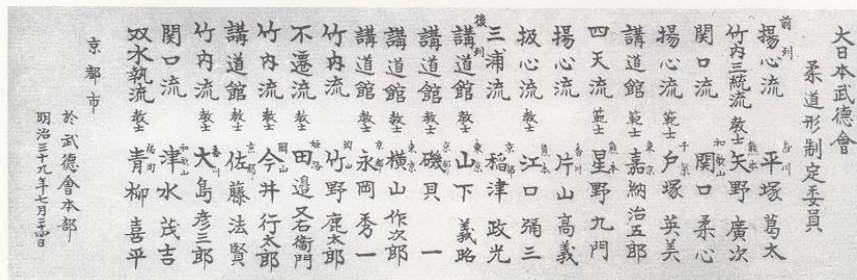 大日本武德會
柔道形制定委員
前列
揚心流 香川 平塚葛太
竹内三統流 教士 熊本 矢野廣次
関口流 和歌山 関口柔心
揚心流 範士 千葉 戸塚英美
講道館 範士 東京 嘉納治五郎
四天流 範士 熊本 星野九門
揚心流 香川 片山高義
扱心流 教士 熊本 江口彌三
三浦流 京都 稲津政光
後列
講道館 教士 東京 山下義韶
講道館 教士 京都 磯貝一
講道館 教士 東京 横山作次郎
講道館 教士 京都 永岡秀一
竹内流 岡山 竹野鹿太郎
不遷流 教士 姫路 田邉又右衛門
竹内流 教士 岡山 今井行太郎
講道館 教士 京都 佐藤法賢
竹内流 教士 香川 大島彦三郎
関口流 和歌山 津水茂吉
双水執流 教士 福岡 青柳喜平
京都市
於武德會本部
明治三十九年七月二十四日